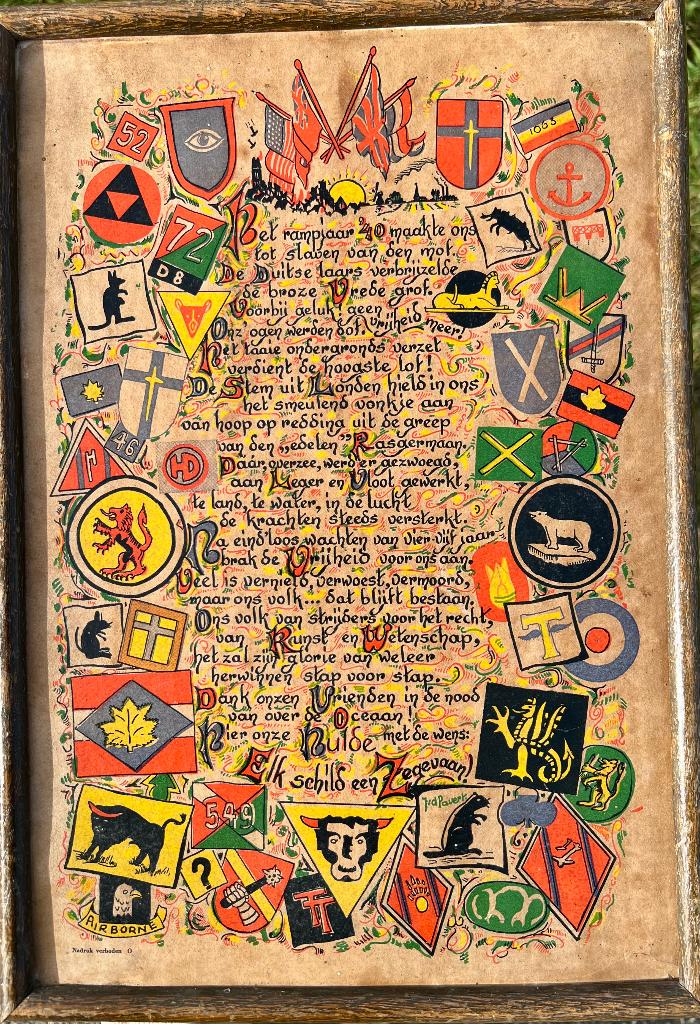 52
1063
72
D8
Het rampjaar '40 maakte ons
tot slaven van den mof.
De Duitse laars verbrijzelde
de broze Vrede grof.
Voorbij geluk! geen vrijheid meer!
Onz' ogen werden dof.
Het taaie ondergronds verzet
verdient de hoogste lof!
De Stem uit Londen hield in ons
het smeulend vonkje aan
van hoop op redding uit de greep
van den „edelen" Rasgermaan.
Daar, overzee, werd er gezwoegd,
aan Leger en Vloot gewerkt,
te land, te water, in de lucht
de krachten steeds versterkt.
Na eindloos wachten van vier vijf jaar
brak de Vrijheid voor ons aan.
Veel is vernield, verwoest, vermoord,
maar ons volk... dat blijft bestaan.
Ons volk van strijders voor het recht,
van Kunst en Wetenschap,
het zal zijn glorie van weleer
herwinnen stap voor stap.
Dank onzen Vrienden in de nood
van over de Oceaan!
Hier onze Hulde met de wens:
Elk schild een Zegevaan!
46
HD
T
549
?
AIRBORNE
Nadruk verboden O